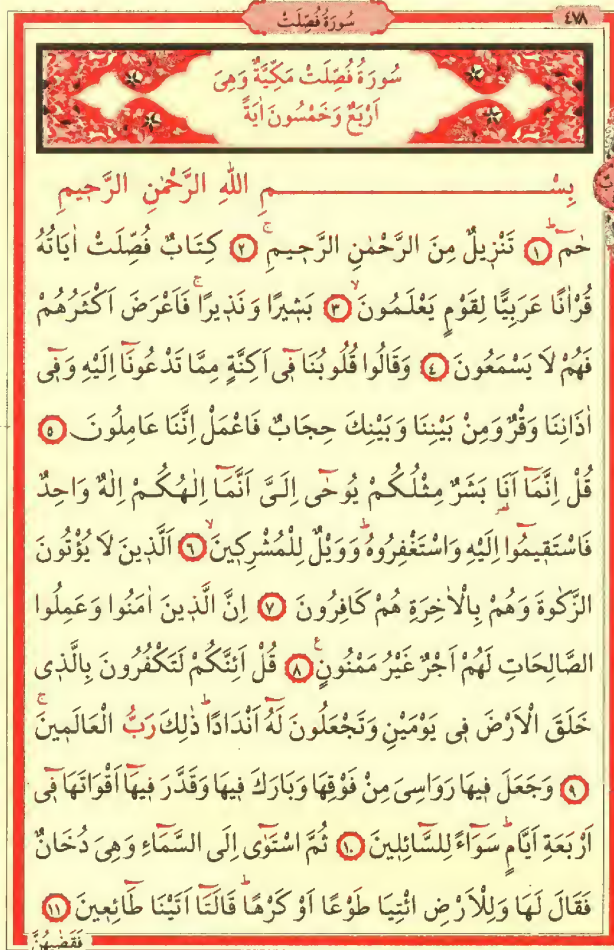 سُورَةُ فُصِّلَتْ
٤٧٨
سُورَةُ فُصِّلَتْ مَكِّيَّةٌ وَهِىَ
اَرْبَعٌ وَخَمْسُونَ اٰيَةً
بِسْمِ اللهِ الرَّحْمٰنِ الرَّحٖيمِ
حٰمٓ ١ تَنْزٖيلٌ مِنَ الرَّحْمٰنِ الرَّحٖيمِ ٢ كِتَابٌ فُصِّلَتْ اٰيَاتُهُ
قُرْاٰنًا عَرَبِيًّا لِقَوْمٍ يَعْلَمُونَ ٣ بَشٖيرًا وَنَذٖيرًا فَاَعْرَضَ اَكْثَرُهُمْ
فَهُمْ لَا يَسْمَعُونَ ٤ وَقَالُوا قُلُوبُنَا فٖٓى اَكِنَّةٍ مِمَّا تَدْعُونَٓا اِلَيْهِ وَفٖٓى
اٰذَانِنَا وَقْرٌ وَمِنْ بَيْنِنَا وَبَيْنِكَ حِجَابٌ فَاعْمَلْ اِنَّنَا عَامِلُونَ ٥
قُلْ اِنَّمَٓا اَنَا۬ بَشَرٌ مِثْلُكُمْ يُوحٰٓى اِلَىَّ اَنَّمَٓا اِلٰهُكُمْ اِلٰهٌ وَاحِدٌ
فَاسْتَقٖيمُٓوا اِلَيْهِ وَاسْتَغْفِرُوهُ وَوَيْلٌ لِلْمُشْرِكٖينَ ٦ اَلَّذٖينَ لَا يُؤْتُونَ
الزَّكٰوةَ وَهُمْ بِالْاٰخِرَةِ هُمْ كَافِرُونَ ٧ اِنَّ الَّذٖينَ اٰمَنُوا وَعَمِلُوا
الصَّالِحَاتِ لَهُمْ اَجْرٌ غَيْرُ مَمْنُونٍ ٨ قُلْ اَئِنَّكُمْ لَتَكْفُرُونَ بِالَّذٖى
خَلَقَ الْاَرْضَ فٖى يَوْمَيْنِ وَتَجْعَلُونَ لَهُٓ اَنْدَادًا ذٰلِكَ رَبُّ الْعَالَمٖينَ
٩ وَجَعَلَ فٖيهَا رَوَاسِىَ مِنْ فَوْقِهَا وَبَارَكَ فٖيهَا وَقَدَّرَ فٖيهَٓا اَقْوَاتَهَا فٖٓى
اَرْبَعَةِ اَيَّامٍ سَوَٓاءً لِلسَّٓائِلٖينَ ١٠ ثُمَّ اسْتَوٰٓى اِلَى السَّمَٓاءِ وَهِىَ دُخَانٌ
فَقَالَ لَهَا وَلِلْاَرْضِ ائْتِيَا طَوْعًا اَوْ كَرْهًا قَالَتَٓا اَتَيْنَا طَٓائِعٖينَ ١١
فَقَضٰيهُنَّ